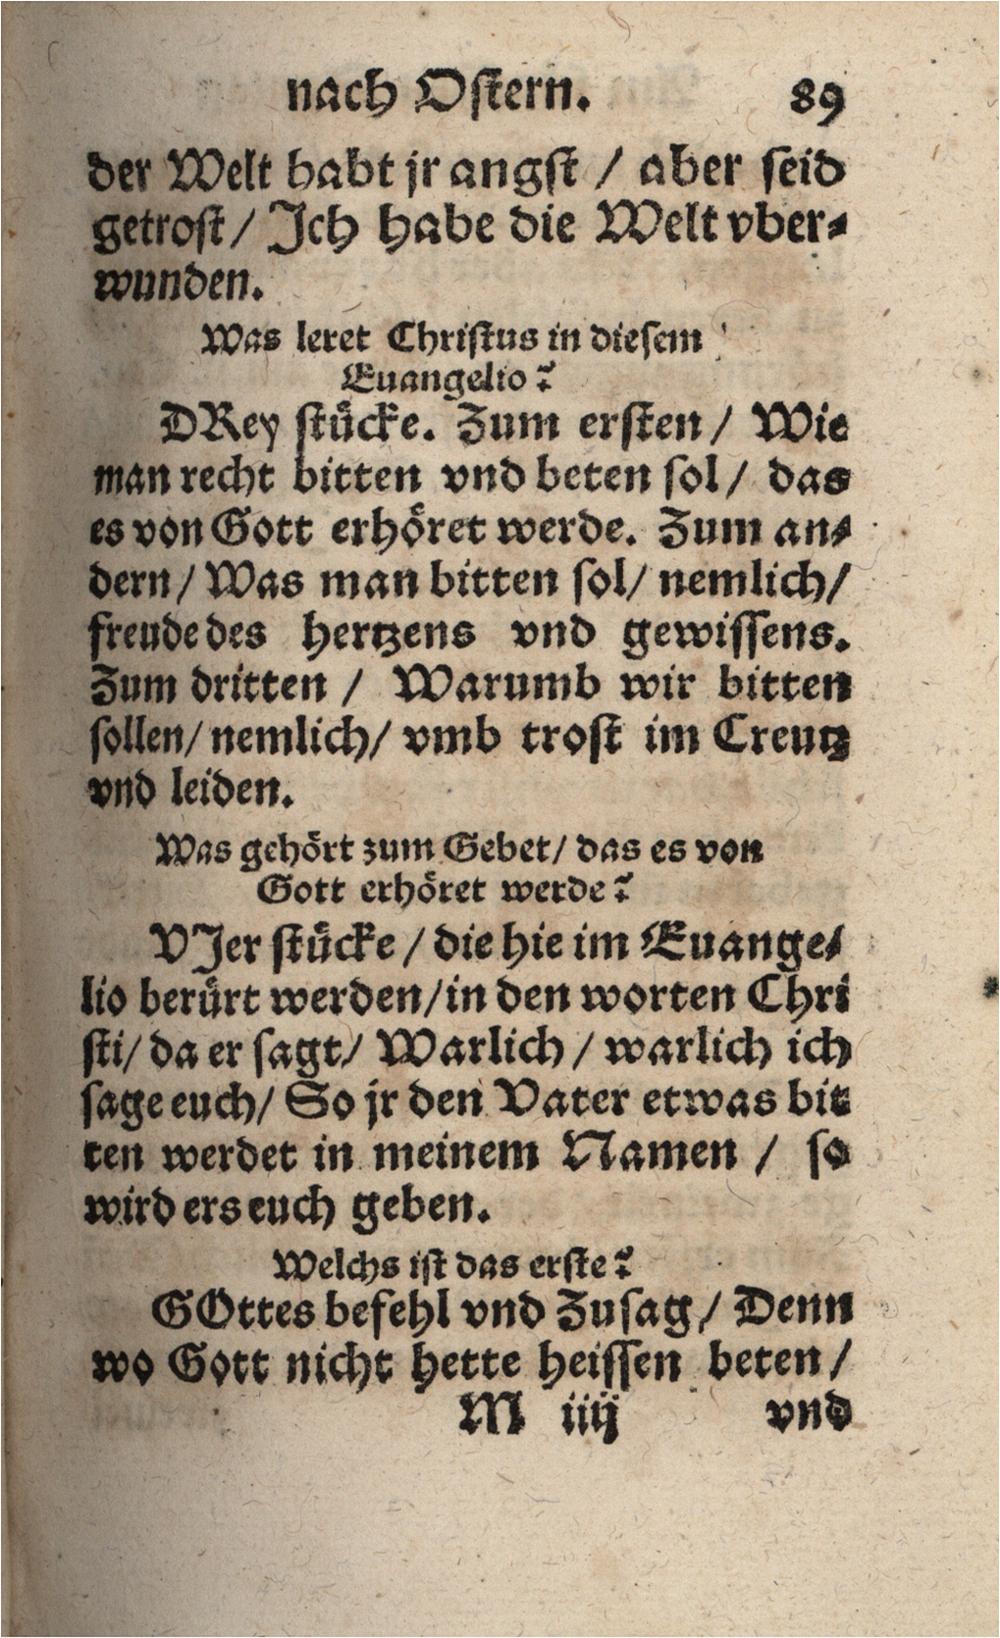 nach Oſtern. 89
der Welt habt jr angſt / aber ſeid
getroſt / Ich habe die Welt vber⸗
wunden.
Was leret Chriſtus in dieſem
Euangelio?
DRey ſtuͤcke. Zum erſten / Wie
man recht bitten vnd beten ſol / das
es von Gott erhoͤret werde. Zum an⸗
dern / Was man bitten ſol / nemlich /
freude des hertzens vnd gewiſſens.
Zum dritten / Warumb wir bitten
ſollen / nemlich / vmb troſt im Creutz
vnd leiden.
Was gehoͤrt zum Gebet / das es von
Gott erhoͤret werde?
VJer ſtuͤcke / die hie im Euange⸗
lio beruͤrt werden / in den worten Chri
ſti / da er ſagt / Warlich / warlich ich
ſage euch / So jr den Vater etwas bit
ten werdet in meinem Namen / ſo
wird ers euch geben.
Welchs iſt das erſte?
GOttes befehl vnd Zuſag / Denn
wo Gott nicht hette heiſſen beten /
M iiij vnd